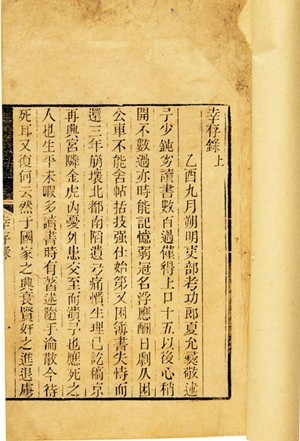 幸存錄上
乙酉九月朔明吏部考功郎夏允彝敬述
予少鈍劣讀書數百過僅得上口十五以後心稍
開不數過亦時能記憶弱冠名浮應酬日劇凡困
公車不能舍帖括技强仕始第又困簿書失恃而
還三年崩壞北都南陷遺弓痛憤生理已訖鎬京
再興宮隣金虎內憂外患交至而潰予也應死之
人也生平未暇多讀書時有著述隨手淪散今待
死耳又復何云然于國家之興衰賢奸之進退虜
幸存錄